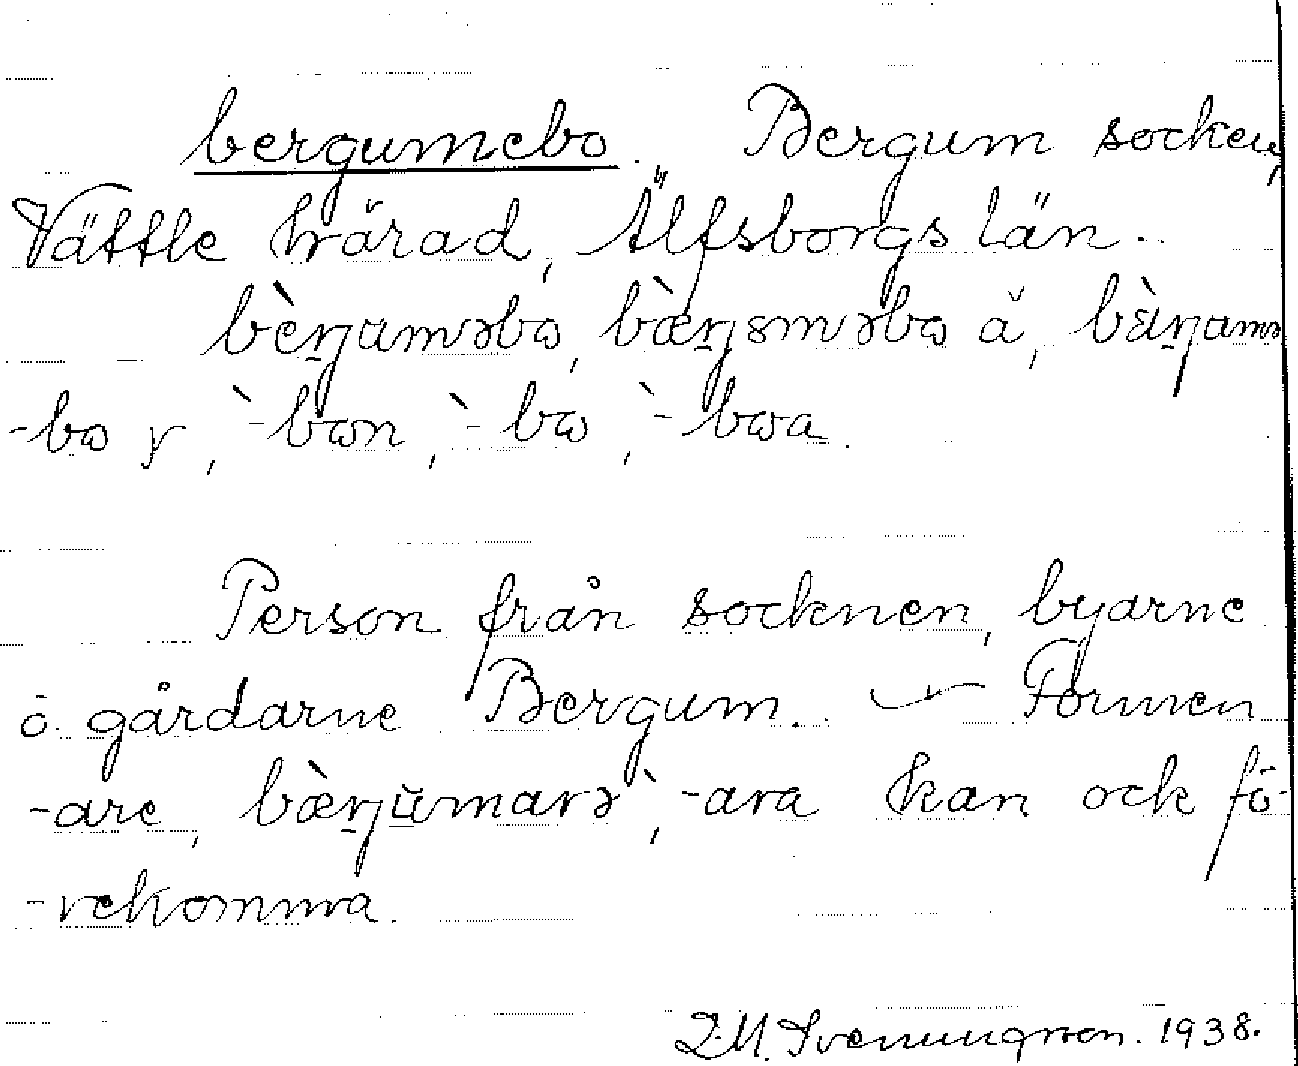 bergumebo. Bergum socken,
Vättle härad, Älfsborgs län.
bèŋuməbɷ, bæ̀ŋɞmɞbɷ å, bɛ̀ŋamə
-bɷ r, `-bɷn, `-bɷ, `-bɷa.
Person från socknen, byarne
o. gårdarne Bergum. — Formen
-are, bæ̀ŋumarə, -ara kan ock fö-
-rekomma.
Svenungsson. 1938.